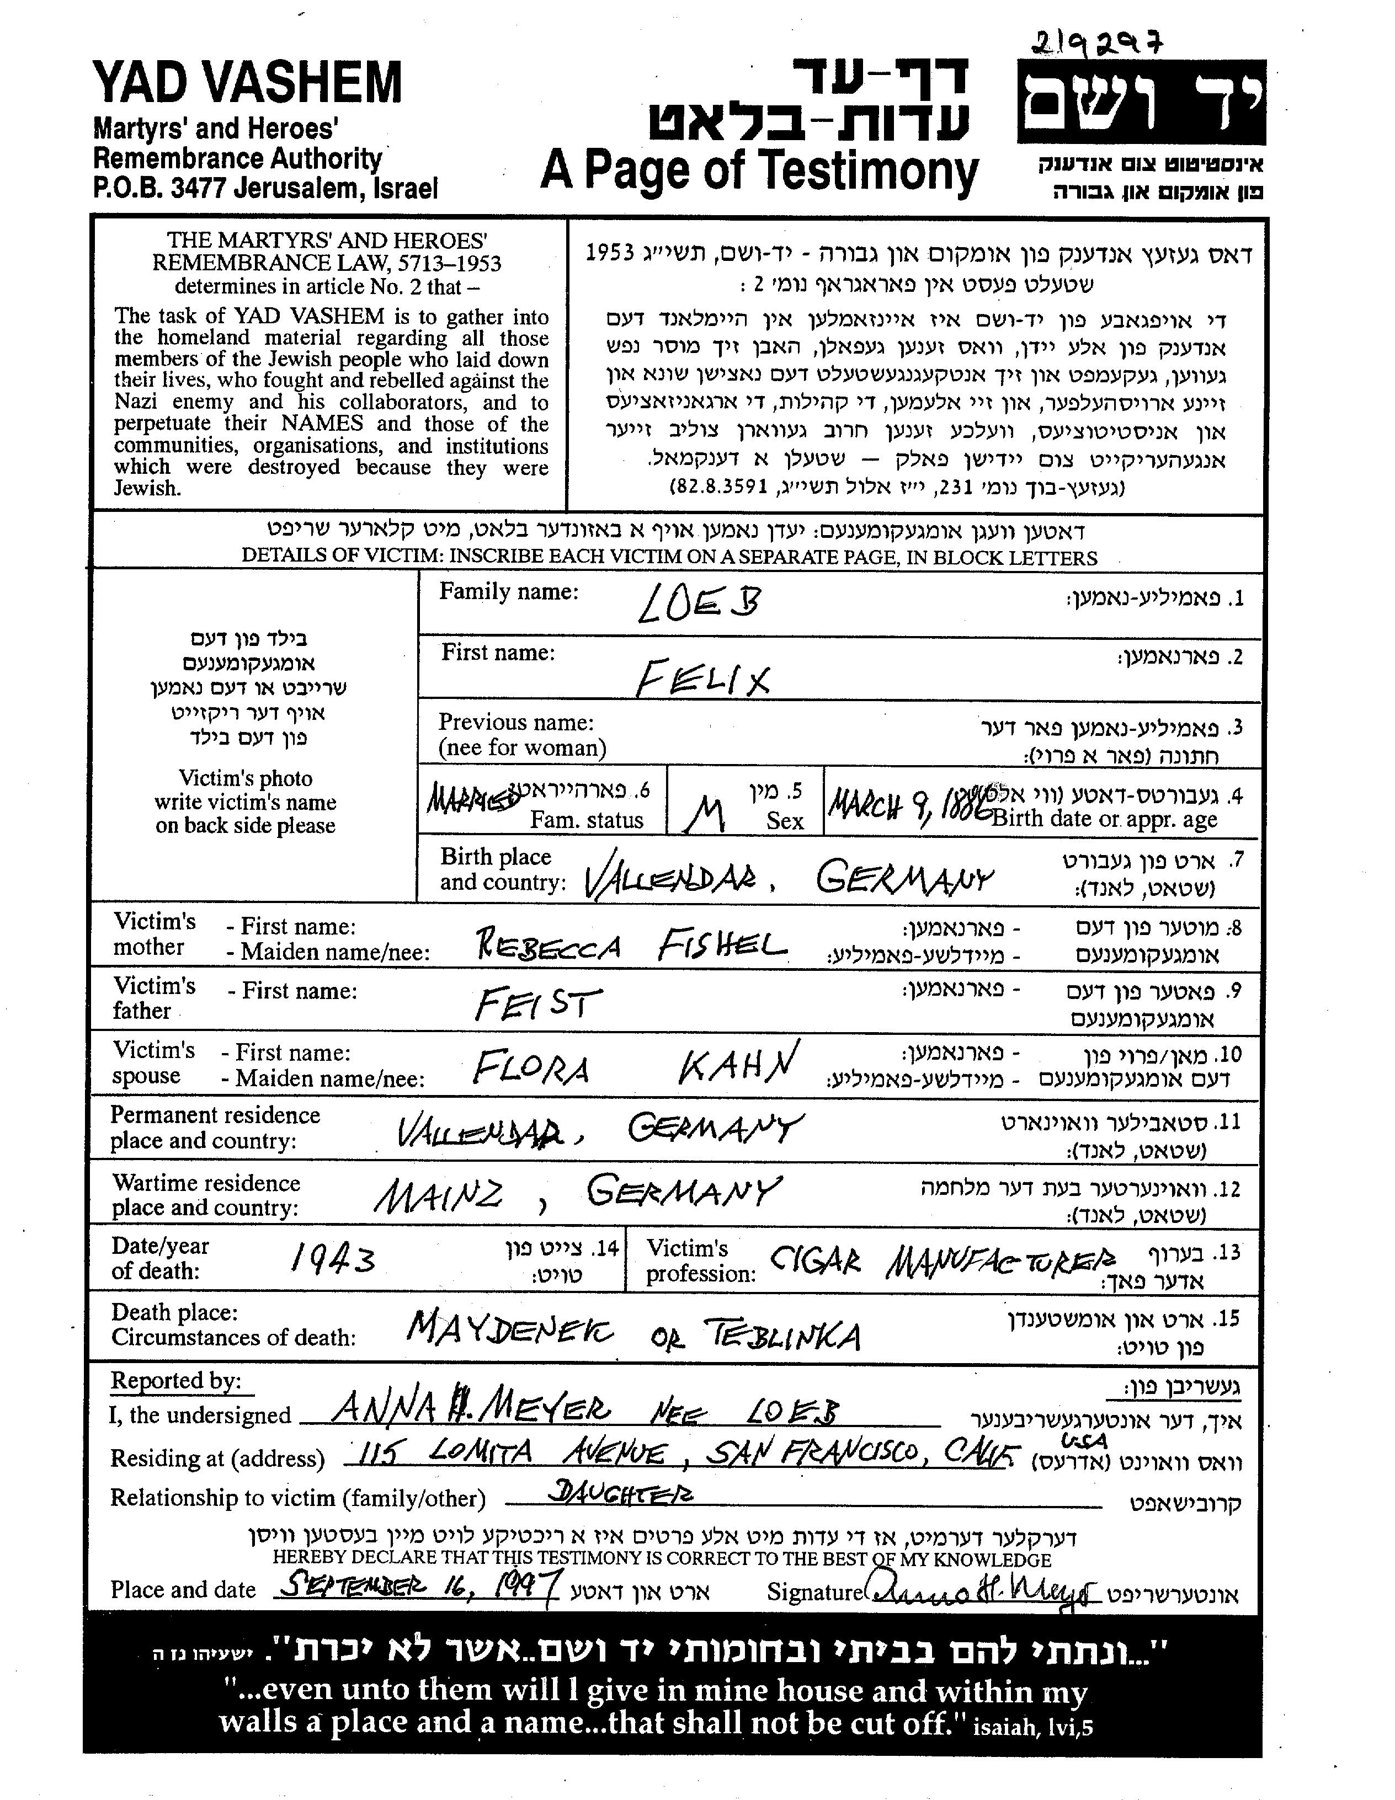 219297
YAD VASHEM
Martyrs' and Heroes'
Remembrance Authority
P.O.B. 3477 Jerusalem, Israel
דף-עד
עדות-בלאט
A Page of Testimony
יד ושם
אינסטיטוט צום אנדענק
פון אומקום און גבורה
THE MARTYRS' AND HEROES'
REMEMBRANCE LAW, 5713–1953
determines in article No. 2 that –
The task of YAD VASHEM is to gather into
the homeland material regarding all those
members of the Jewish people who laid down
their lives, who fought and rebelled against the
Nazi enemy and his collaborators, and to
perpetuate their NAMES and those of the
communities, organisations, and institutions
which were destroyed because they were
Jewish.
דאס געזעץ אנדענק פון אומקום און גבורה - יד-ושם, תשי״ג 1953
שטעלט פעסט אין פאראגראף נומ׳ 2 :
די אויפגאבע פון יד-ושם איז איינזאמלען אין היימלאנד דעם
אנדענק פון אלע יידן, וואס זענען געפאלן, האבן זיך מוסר נפש
געווען, געקעמפט און זיך אנטקעגנגעשטעלט דעם נאצישן שונא און
זיינע ארויסהעלפער, און זיי אלעמען, די קהילות, די ארגאניזאציעס
און אניסטיטוציעס, וועלכע זענען חרוב געווארן צוליב זייער
אנגעהעריקייט צום יידישן פאלק — שטעלן א דענקמאל.
(געזעץ-בוך נומ׳ 231, י״ז אלול תשי״ג, 82.8.3591)
דאטען וועגן אומגעקומענעם: יעדן נאמען אויף א באזונדער בלאט, מיט קלארער שריפט
DETAILS OF VICTIM: INSCRIBE EACH VICTIM ON A SEPARATE PAGE, IN BLOCK LETTERS
בילד פון דעם
אומגעקומענעם
שרייבט או דעם נאמען
אויף דער ריקזייט
פון דעם בילד
Victim's photo
write victim's name
on back side please
Family name: LOEB 1. פאמיליע-נאמען:
First name: FELIX 2. פארנאמען:
Previous name: 3. פאמיליע-נאמען פאר דער
(nee for woman) חתונה (פאר א פרוי):
MARRIED 6. פארהייראט 5. מין 4. געבורטס-דאטע (ווי אלט
Fam. status M Sex MARCH 9, 1886 Birth date or appr. age
Birth place 7. ארט פון געבורט
and country: VALLENDAR, GERMANY (שטאט, לאנד):
Victim's - First name: - פארנאמען: 8. מוטער פון דעם
mother - Maiden name/nee: REBECCA FISHEL - מיידלשע-פאמיליע: אומגעקומענעם
Victim's - First name: FEIST - פארנאמען: 9. פאטער פון דעם
father אומגעקומענעם
Victim's - First name: - פארנאמען: 10. מאן/פרוי פון
spouse - Maiden name/nee: FLORA KAHN - מיידלשע-פאמיליע: דעם אומגעקומענעם
Permanent residence 11. סטאבילער וואוינארט
place and country: VALLENDAR, GERMANY (שטאט, לאנד):
Wartime residence 12. וואוינערטער בעת דער מלחמה
place and country: MAINZ, GERMANY (שטאט, לאנד):
Date/year 1943 14. צייט פון Victim's CIGAR MANUFACTURER 13. בערוף
of death: טויט: profession: אדער פאך:
Death place: 15. ארט און אומשטענדן
Circumstances of death: MAYDENEK OR TEBLINKA פון טויט:
Reported by: געשריבן פון:
I, the undersigned ANNA H. MEYER NEE LOEB איך, דער אונטערגעשריבענער
Residing at (address) 115 LOMITA AVENUE, SAN FRANCISCO, CALIF USA וואס וואוינט (אדרעס)
Relationship to victim (family/other) DAUGHTER קרובישאפט
דערקלער דערמיט, אז די עדות מיט אלע פרטים איז א ריכטיקע לויט מיין בעסטען וויסן
HEREBY DECLARE THAT THIS TESTIMONY IS CORRECT TO THE BEST OF MY KNOWLEDGE
Place and date SEPTEMBER 16, 1997 ארט און דאטע Signature Anna H. Meyer אונטערשריפט
"...ונתתי להם בביתי ובחומותי יד ושם..אשר לא יכרת". ישעיהו נז ה
"...even unto them will I give in mine house and within my
walls a place and a name...that shall not be cut off." isaiah, lvi,5